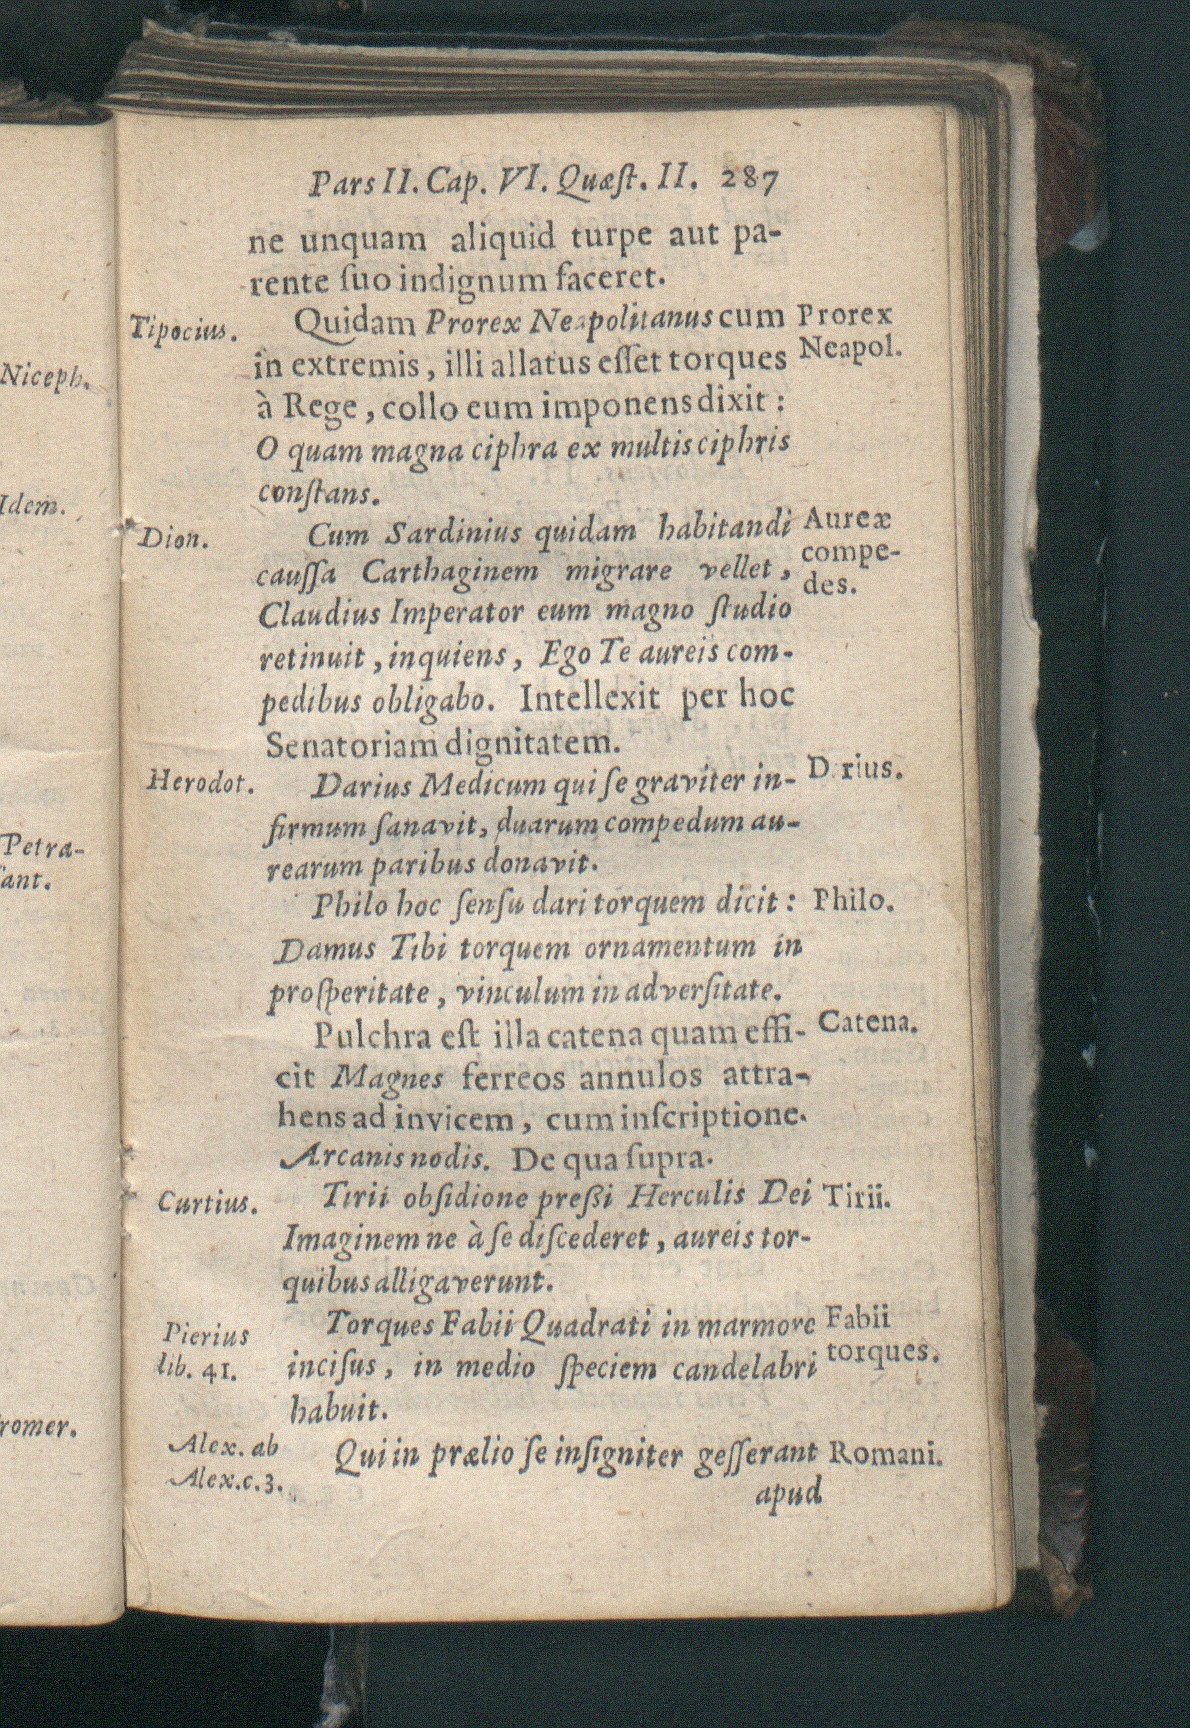 Pars II. Cap. VI. Quæſt. II. 287
ne unquam aliquid turpe aut pa-
rente ſuo indignum faceret.
Tipocius.
Quidam Prorex Neapolitanus cum
in extremis, illi allatus eſſet torques
à Rege, collo eum imponens dixit:
O quam magna ciphra ex multis ciphris
conſtans.
Prorex
Neapol.
Dion.
Cum Sardinius quidam habitandi
cauſſa Carthaginem migrare vellet,
Claudius Imperator eum magno ſtudio
retinuit, inquiens, Ego Te aureis com-
pedibus obligabo. Intellexit per hoc
Senatoriam dignitatem.
Aureæ
compe-
des.
Herodot.
Darius Medicum qui ſe graviter in-
firmum ſanavit, duarum compedum au-
rearum paribus donavit.
D rius.
Philo hoc ſenſu dari torquem dicit:
Damus Tibi torquem ornamentum in
proſperitate, vinculum in adverſitate.
Philo.
Pulchra eſt illa catena quam effi-
cit Magnes ferreos annulos attra-
hens ad invicem, cum inſcriptione.
Arcanis nodis. De qua ſupra.
Catena.
Curtius.
Tirii obſidione preßi Herculis Dei
Imaginem ne à ſe diſcederet, aureis tor-
quibus alligaverunt.
Tirii.
Pierius
lib. 41.
Torques Fabii Quadrati in marmore
inciſus, in medio ſpeciem candelabri
habuit.
Fabii
torques.
Alex. ab
Alex. c. 3.
Qui in prælio ſe inſigniter geſſerant
Romani.
apud
Niceph.
Idem.
Petra-
ſant.
romer.